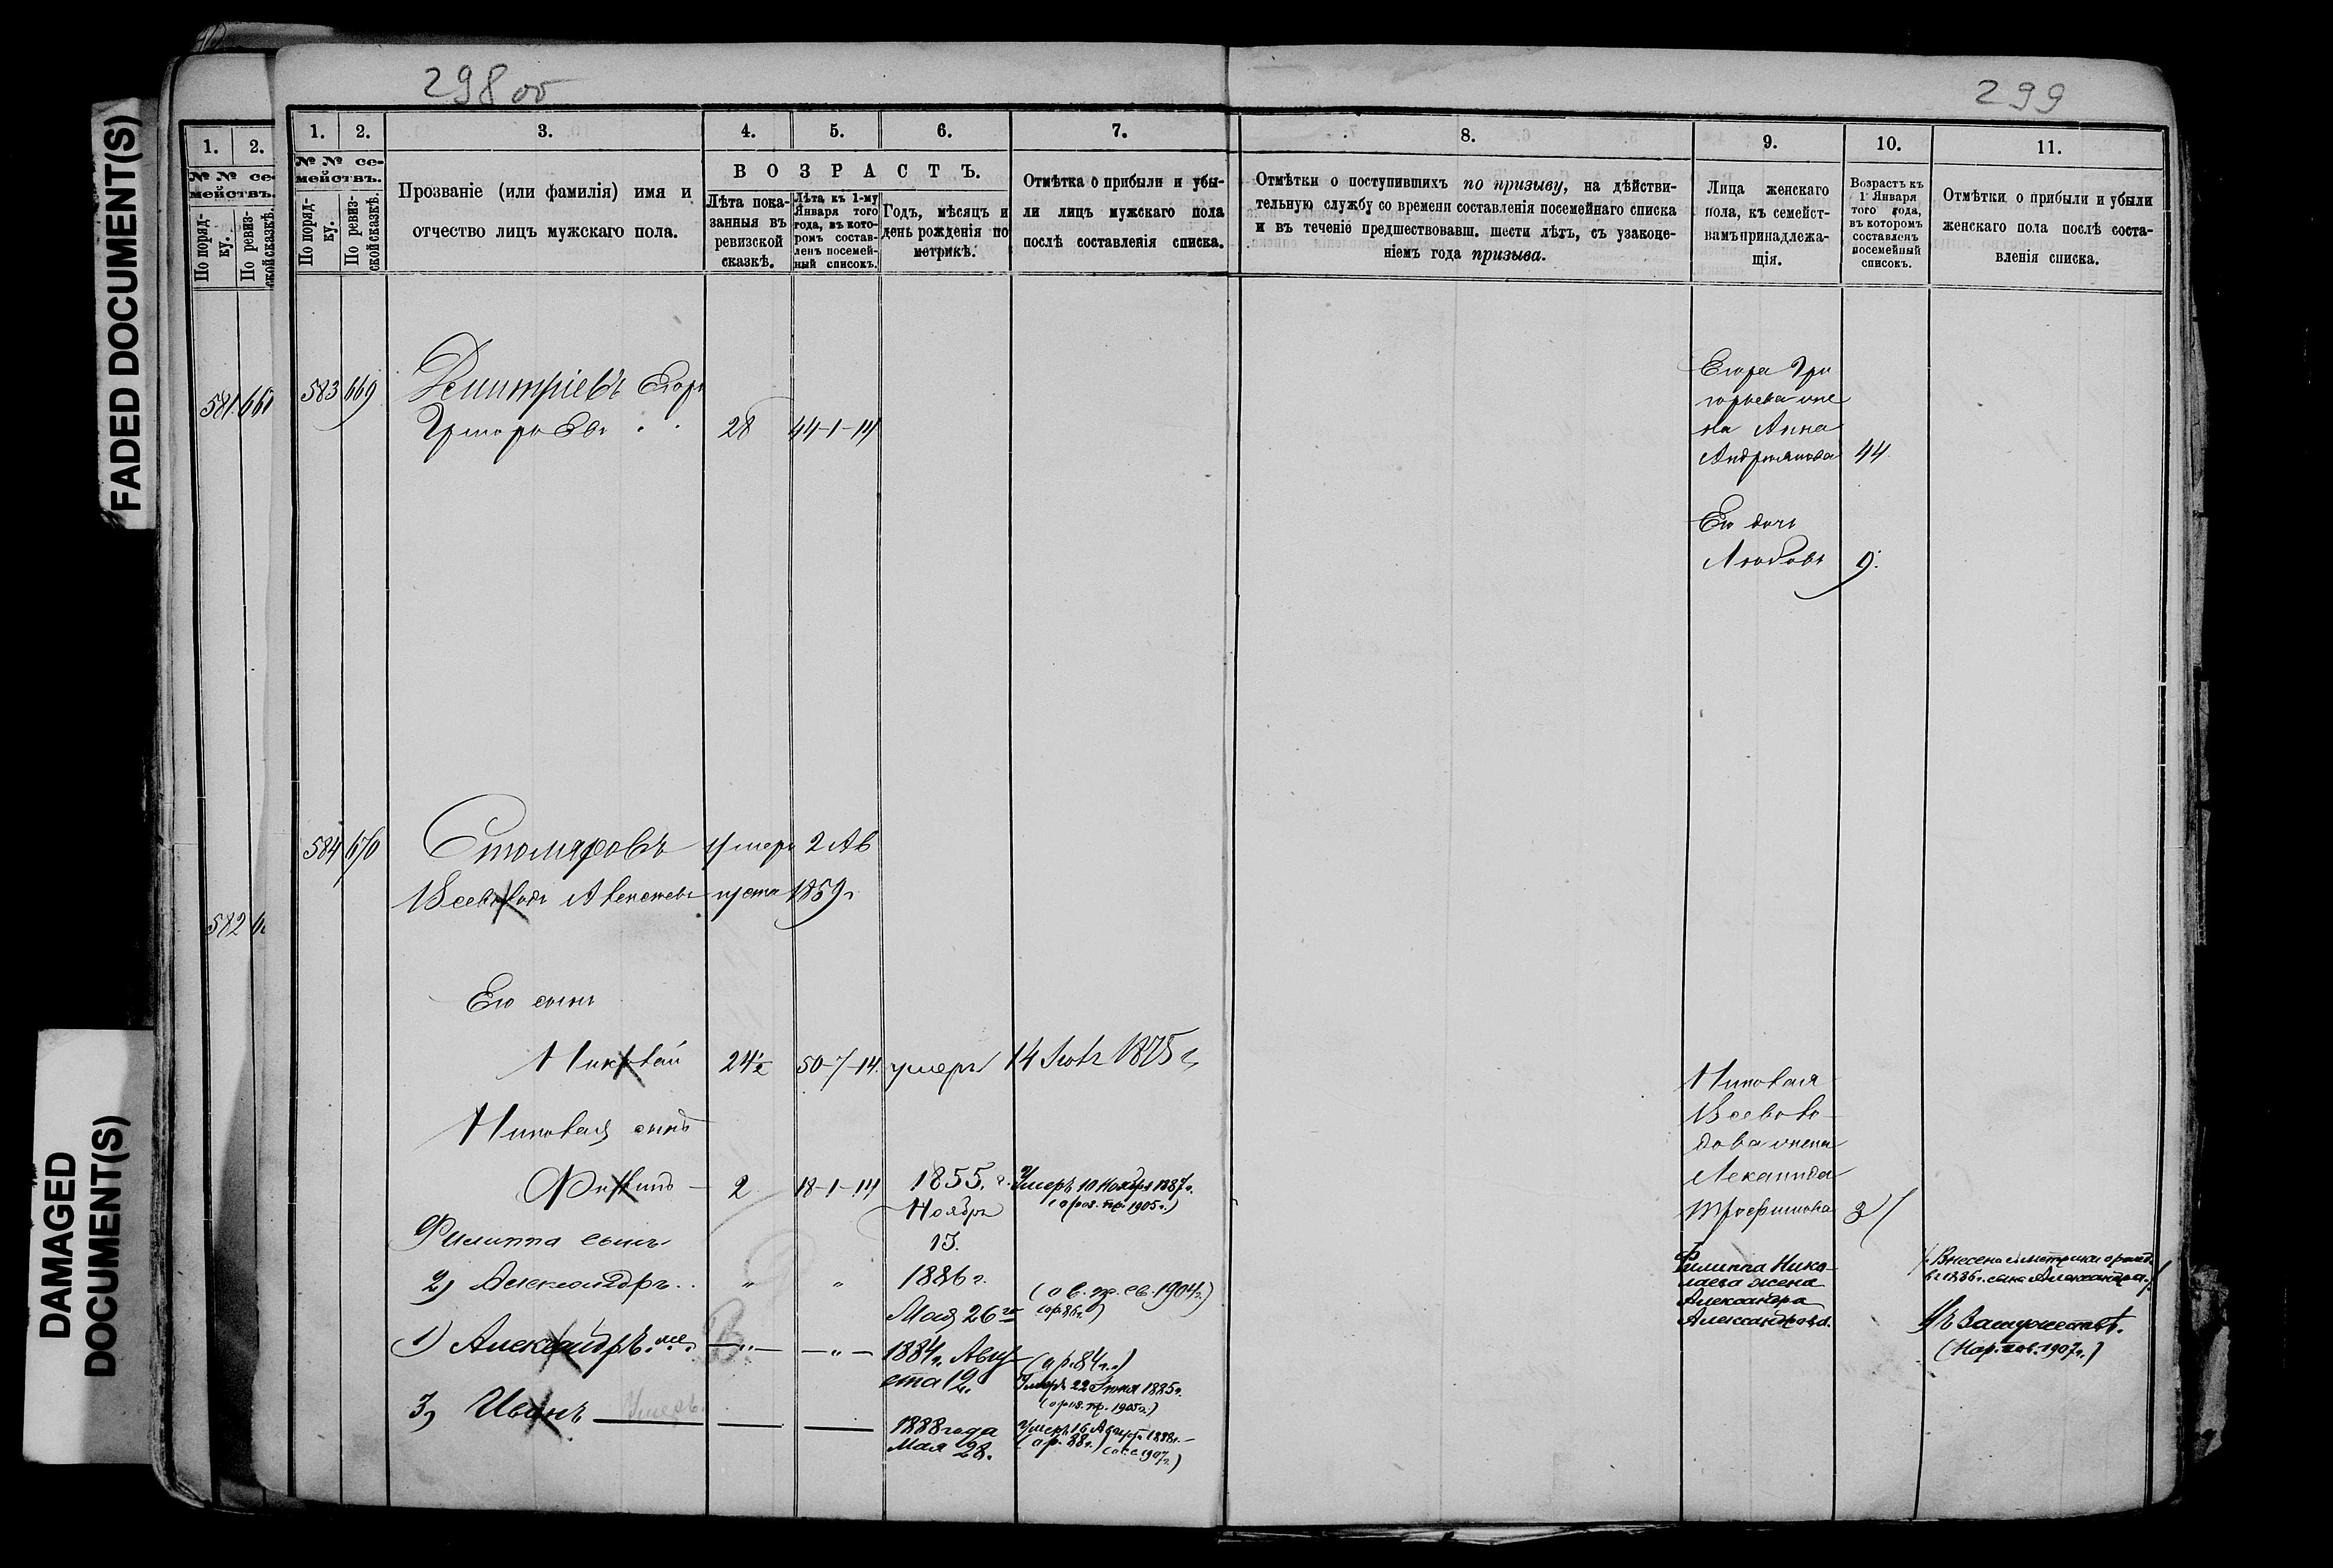 FADED DOCUMENT(S)
DAMAGED
DOCUMENT(S)
298 об
299
1. 2.
№ № се-
мействъ.
По поряд-
ку.
По ревиз-
ской сказкѣ.
581
582
1. 2. 3. 4. 5. 6. 7. 8. 9. 10. 11.
№ № се-
мействъ.
По поряд-
ку.
По ревиз-
ской сказкѣ.
Прозваніе (или фамилія) имя и
отчество лицъ мужскаго пола.
ВОЗРАСТЪ.
Лѣта пока-
занныя въ
ревизской
сказкѣ.
Лѣта къ 1-му
Января того
года, въ кото-
ромъ состав-
ленъ посемей-
ный списокъ.
Годъ, мѣсяцъ и
день рожденія по
метрикѣ.
Отмѣтка о прибыли и убы-
ли лицъ мужскаго пола
послѣ составленія списка.
Отмѣтки о поступившихъ по призыву, на дѣйстви-
тельную службу со времени составленія посемейнаго списка
и въ теченіе предшествовавш. шести лѣтъ, съ узаконе-
ніемъ года призыва.
Лица женскаго
пола, къ семейст-
вамъ принадлежа-
щія.
Возрастъ къ
1 Января
того года,
въ которомъ
составленъ
посемейный
списокъ.
Отмѣтки о прибыли и убыли
женскаго пола послѣ соста-
вленія списка.
583 669 Дмитріевъ Егоръ
Григорьевъ 28 44-1-14
Егора Гри
горьева же
на Анна
Андриянова 44
Его дочь
Любовь 9.
584 670 Столяровъ умеръ 2 Ав
Всеволодъ Алексеевъ густа 1859г
Его сынъ
Николай 24½ 50-7-14 умеръ 14 1875 г.
Николая сынъ
Филипъ 2 18-1-14 1855. г.
Ноября
13.
Умеръ 10 Ноября 1887г.
1905г.)
Николая
Всеволо
дова жена
Леканида
Трофимова
Филиппа сынъ
2) Александръ.. " " 1886 г.
Мая 26го
(о в. пр. св. 1904г.)
(ор. 86г.)
Филиппа Нико-
лаева жена
Александра
Александрова.
Внесена
1886г. сына Александра.
Въ Замужестве.
1907г.)
1) Александръ. —"— —"— 1884г. Авгу
ста 12.
(ор. 84г.)
Умеръ 22 Іюня 1885г.
1905г.)
3) Иванъ Умеръ. 1888 года
Мая 28.
Умеръ 16 Августа 1888г.
(ор. 88г.) 1907г.)